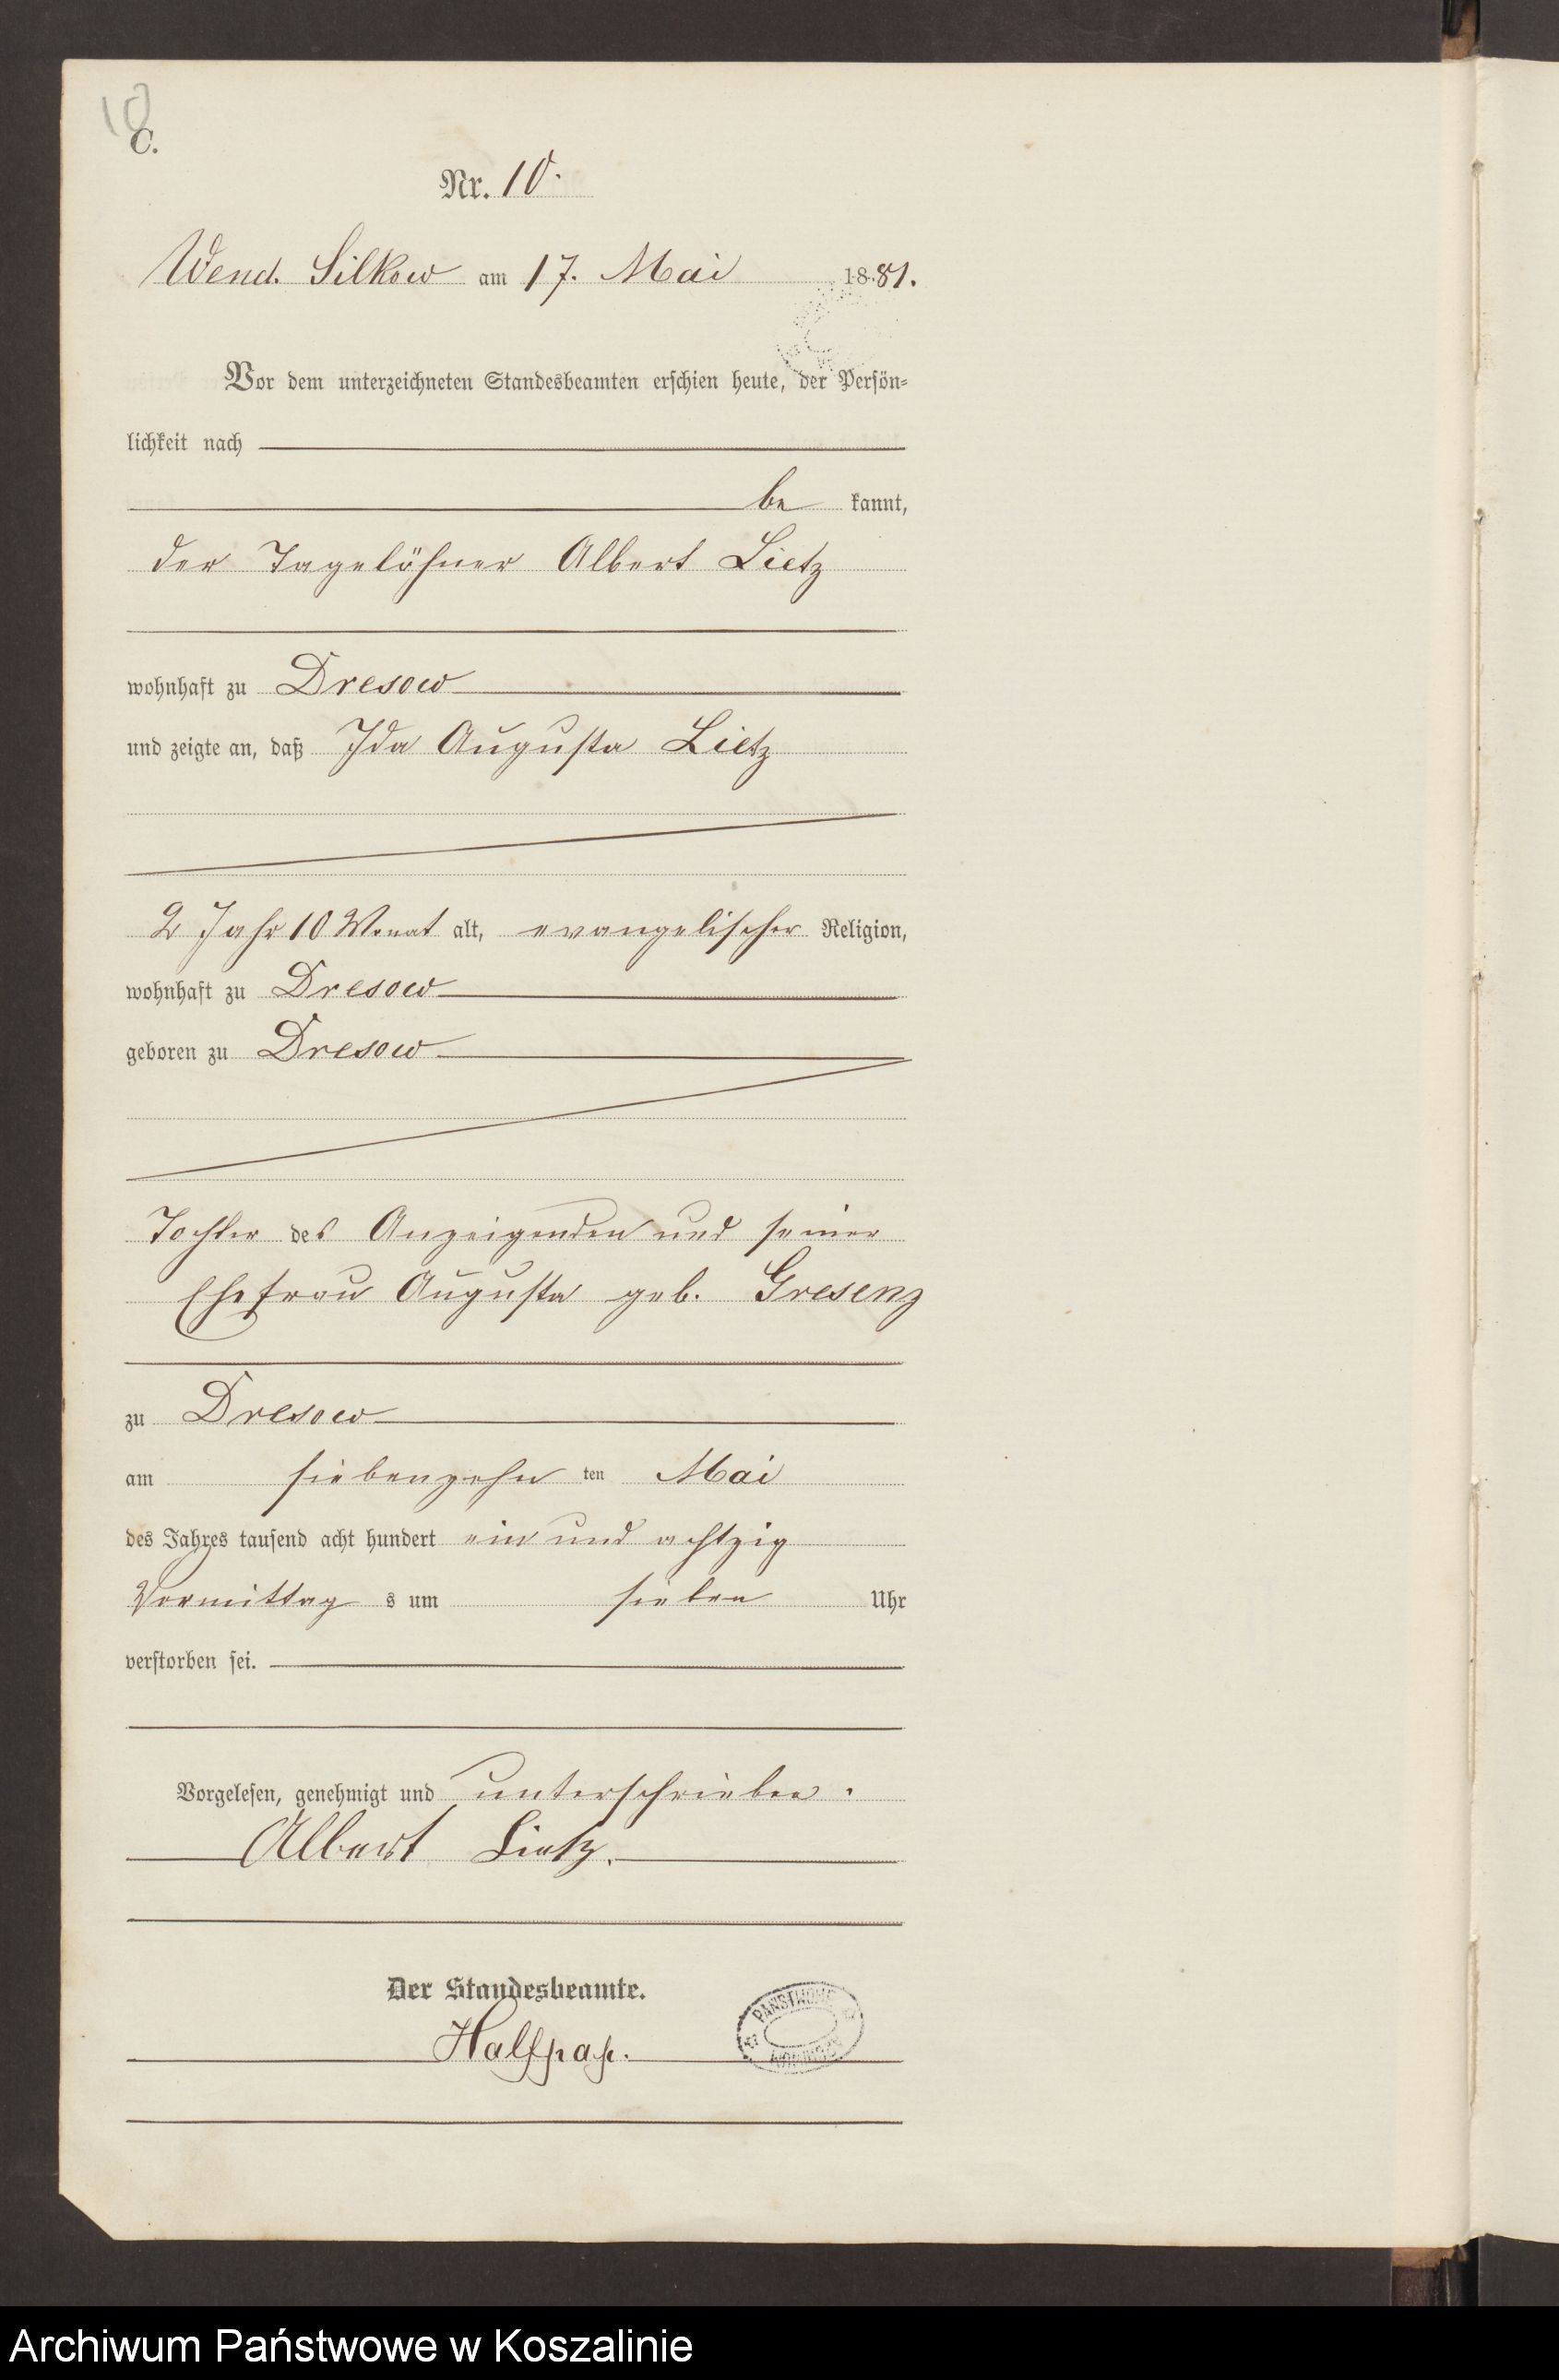 10
C.
Nr. 10.
Wend. Silkow am 17. Mai 1881.
Vor dem unterzeichneten Standesbeamten erschien heute, der Persön-
lichkeit nach
be kannt,
der Tagelöhner Albert Lietz
wohnhaft zu Dresow
und zeigte an, daß Ida Augusta Lietz
2 Jahr 10 Monat alt, evangelischer Religion,
wohnhaft zu Dresow
geboren zu Dresow
Tochter des Anzeigenden und seiner
Ehefrau Augusta geb. Gresenz
zu Dresow
am siebenzehn ten Mai
des Jahres tausend acht hundert ein und achtzig
Vormittag s um sieben Uhr
verstorben sei.
Vorgelesen, genehmigt und unterschrieben.
Albert Lietz.
Der Standesbeamte.
Halfpap.
Archiwum Państwowe w Koszalinie